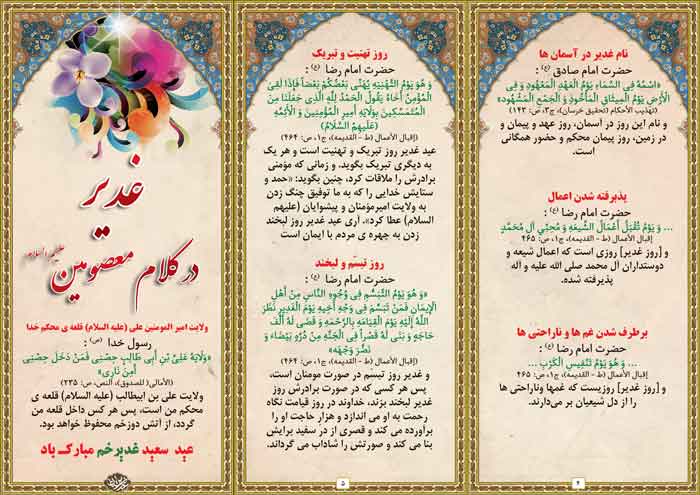 نام غدیر در آسمان ها
حضرت امام صادق (ع) :
«اسْمُهُ فِی السَّمَاءِ یَوْمُ الْعَهْدِ الْمَعْهُودِ وَ فِی
الْأَرْضِ یَوْمُ الْمِیثَاقِ الْمَأْخُوذِ وَ الْجَمْعِ الْمَشْهُودِ»
(تهذیب الأحکام (تحقیق خرسان)، ج۳، ص: ۱۴۳)
و نام این روز در آسمان، روز عهد و پیمان و
در زمین، روز پیمان محکم و حضور همگانی
است.
پذیرفته شدن اعمال
حضرت امام رضا (ع) :
... وَ یَوْمُ تُقْبَلُ أَعْمَالُ الشِّیعَهِ وَ مُحِبِّی آلِ مُحَمَّدٍ
إقبال الأعمال (ط - القدیمه)، ج۱، ص: ۴۶۵
و [روز غدیر] روزی است که اعمال شیعه و
دوستداران آل محمد صلی الله علیه و آله
پذیرفته شده.
برطرف شدن غم ها و ناراحتی ها
حضرت امام رضا (ع) :
... وَ هُوَ یَوْمُ تَنْفِیسِ الْکَرْبِ ...
إقبال الأعمال (ط - القدیمه)، ج۱، ص: ۴۶۵
و [روز غدیر] روزیست که غمها وناراحتی ها
را از دل شیعیان بر می‌دارند.
۴
روز تهنیت و تبریک
حضرت امام رضا (ع) :
وَ هُوَ یَوْمُ التَّهْنِیَهِ یُهَنِّی بَعْضُکُمْ بَعْضاً فَإِذَا لَقِیَ
الْمُؤْمِنُ أَخَاهُ یَقُولُ الْحَمْدُ لِلَّهِ الَّذِی جَعَلَنَا مِنَ
الْمُتَمَسِّکِینَ بِوِلَایَهِ أَمِیرِ الْمُؤْمِنِینَ وَ الْأَئِمَّهِ
(عَلَیْهِمُ السَّلَامُ)
(إقبال الأعمال (ط - القدیمه)، ج۱، ص: ۴۶۴)
عید غدیر روز تبریک و تهنیت است و هر یک
به دیگری تبریک بگوید. و زمانی که مؤمنی
برادرش را ملاقات کرد، چنین بگوید: «حمد و
ستایش خدایی را که به ما توفیق چنگ زدن
به ولایت امیرمؤمنان و پیشوایان (علیهم
السلام) عطا کرد». آری عید غدیر روز لبخند
زدن به چهره ی مردم با ایمان است
روز تبسّم و لبخند
حضرت امام رضا (ع) :
«وَ هُوَ یَوْمُ التَّبَسُّمِ فِی وُجُوهِ النَّاسِ مِنْ أَهْلِ
الْإِیمَانِ فَمَنْ تَبَسَّمَ فِی وَجْهِ أَخِیهِ یَوْمَ الْغَدِیرِ نَظَرَ
اللَّهُ إِلَیْهِ یَوْمَ الْقِیَامَهِ بِالرَّحْمَهِ وَ قَضَى لَهُ أَلْفَ
حَاجَهٍ وَ بَنَى لَهُ قَصْراً فِی الْجَنَّهِ مِنْ دُرَّهٍ بَیْضَاءَ وَ
نَضَّرَ وَجْهَهُ»
(إقبال الأعمال (ط - القدیمه)، ج۱، ص: ۴۶۴)
و غدیر روز تبسّم در صورت مومنان است،
پس هر کسی که در صورت برادرش روز
غدیر لبخند بزند، خداوند در روز قیامت نگاه
رحمت به او می اندازد و هزار حاجت او را
برآورده می کند و قصری از در سفید برایش
بنا می کند و صورتش را شاداب می گرداند.
۵
غدیر
در کلام معصومین علیهم السلام
ولایت امیر المومنین علی (علیه السلام) قلعه ی محکم خدا
رسول خدا (ص) :
«وَلَایَهُ عَلِیِّ بْنِ أَبِی طَالِبٍ حِصْنِی فَمَنْ دَخَلَ حِصْنِی
أَمِنَ نَارِی»
(الأمالی( للصدوق)، النص، ص: ۲۳۵)
ولایت علی بن ابیطالب (علیه السلام) قلعه ی
محکم من است، پس هر کس داخل قلعه من
گردد، از آتش دوزخم محفوظ خواهد بود.
عید سعید غدیرخم مبارک باد